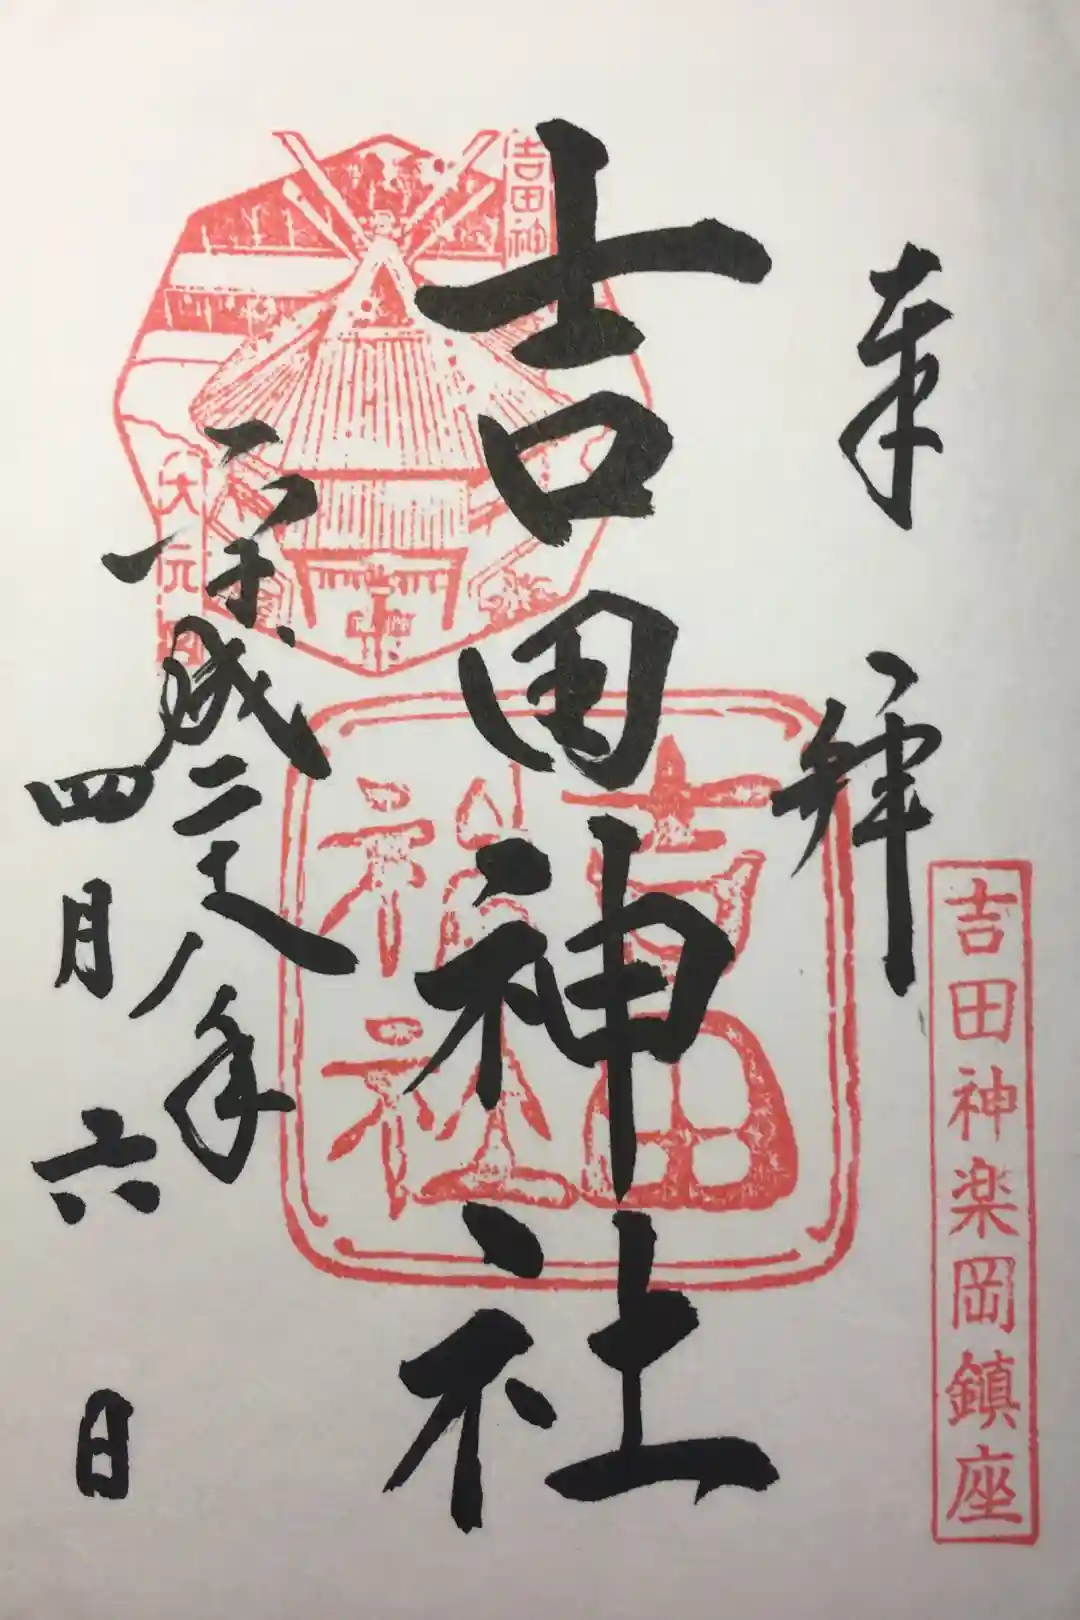 奉拝
吉田神楽岡鎮座
吉田神社
吉田神社
吉田神
大元
平成二十八年
四月六日